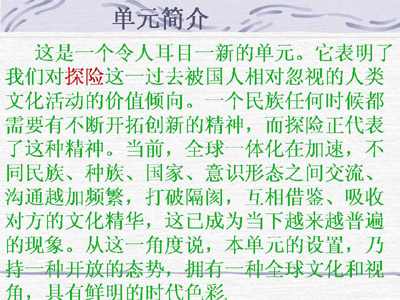 单元简介
这是一个令人耳目一新的单元。它表明了
我们对探险这一过去被国人相对忽视的人类
文化活动的价值倾向。一个民族任何时候都
需要有不断开拓创新的精神，而探险正代表
了这种精神。当前，全球一体化在加速，不
同民族、种族、国家、意识形态之间交流、
沟通越加频繁，打破隔阂，互相借鉴、吸收
对方的文化精华，这已成为当下越来越普遍
的现象。从这一角度说，本单元的设置，乃
持一种开放的态势，拥有一种全球文化和视
角，具有鲜明的时代色彩.